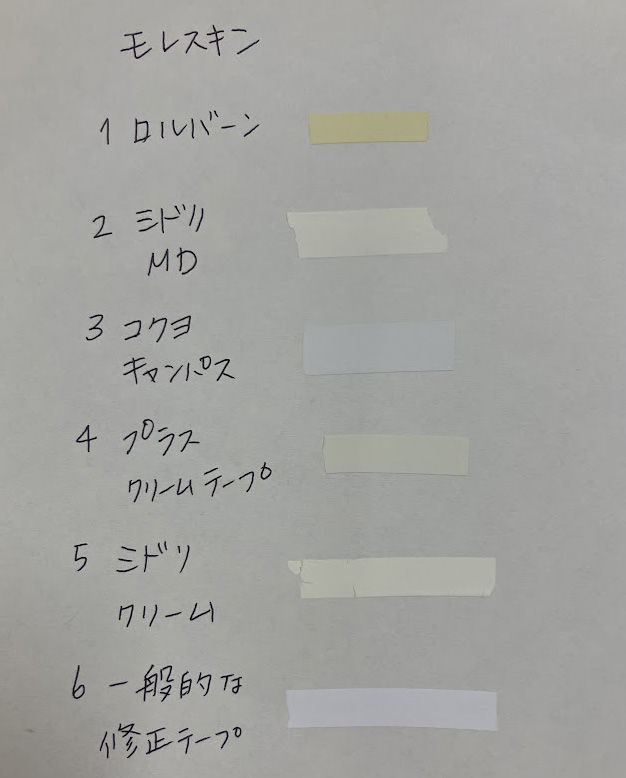 モレスキン
1 ロルバーン
2 ミドリ
MD
3 コクヨ
キャンパス
4 プラス
クリームテープ
5 ミドリ
クリーム
6 一般的な
修正テープ